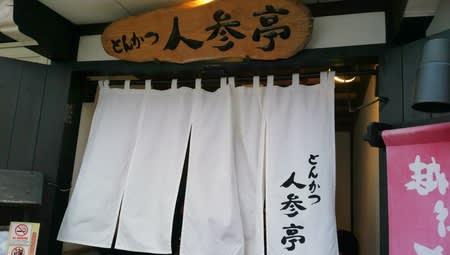 とんかつ 人参亭
とんかつ
人参亭